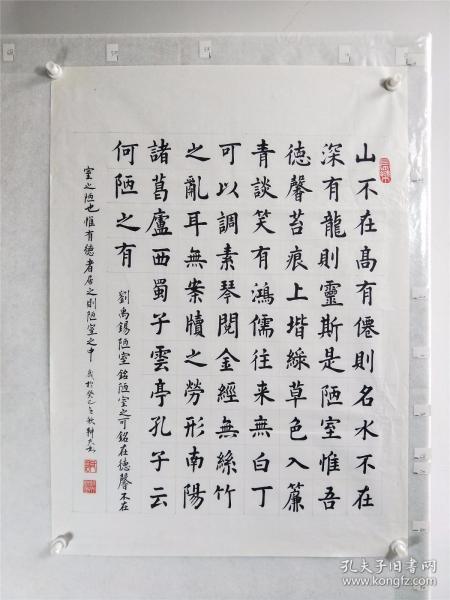 山不在高有僊則名水不在
深有龍則靈斯是陋室惟吾
德馨苔痕上堦綠草色入簾
青談笑有鴻儒往来無白丁
可以調素琴閱金經無絲竹
之亂耳無案牘之勞形南陽
諸葛廬西蜀子雲亭孔子云
何陋之有
劉禹錫陋室銘陋室之可銘在德馨不在
室之陋也惟有德者居之則陋室之中
孔夫子旧书网
www.kongfz.com